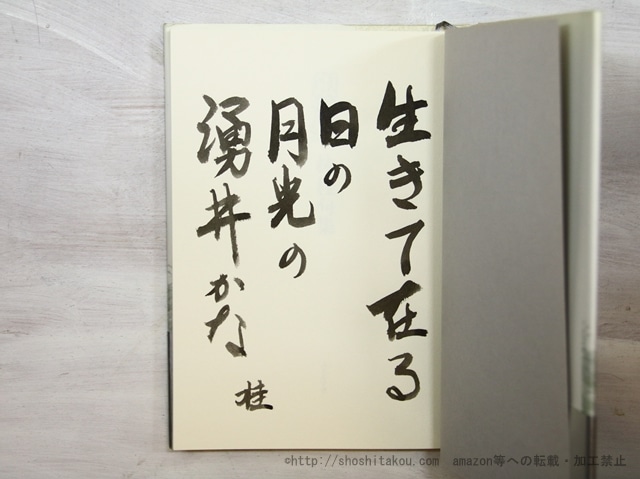 生きて在る
日の
月光の
湧井かな
桂
©http://shoshitakou.com amazon等への転載・加工禁止